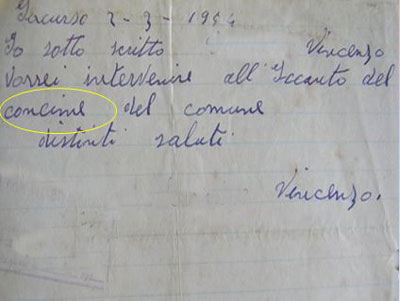 Jacurso 2-3-1954
Io sotto scritto Vincenzo
Vorrei intervenire all Iccanto del
concime del comune
distinti saluti
Vincenzo.